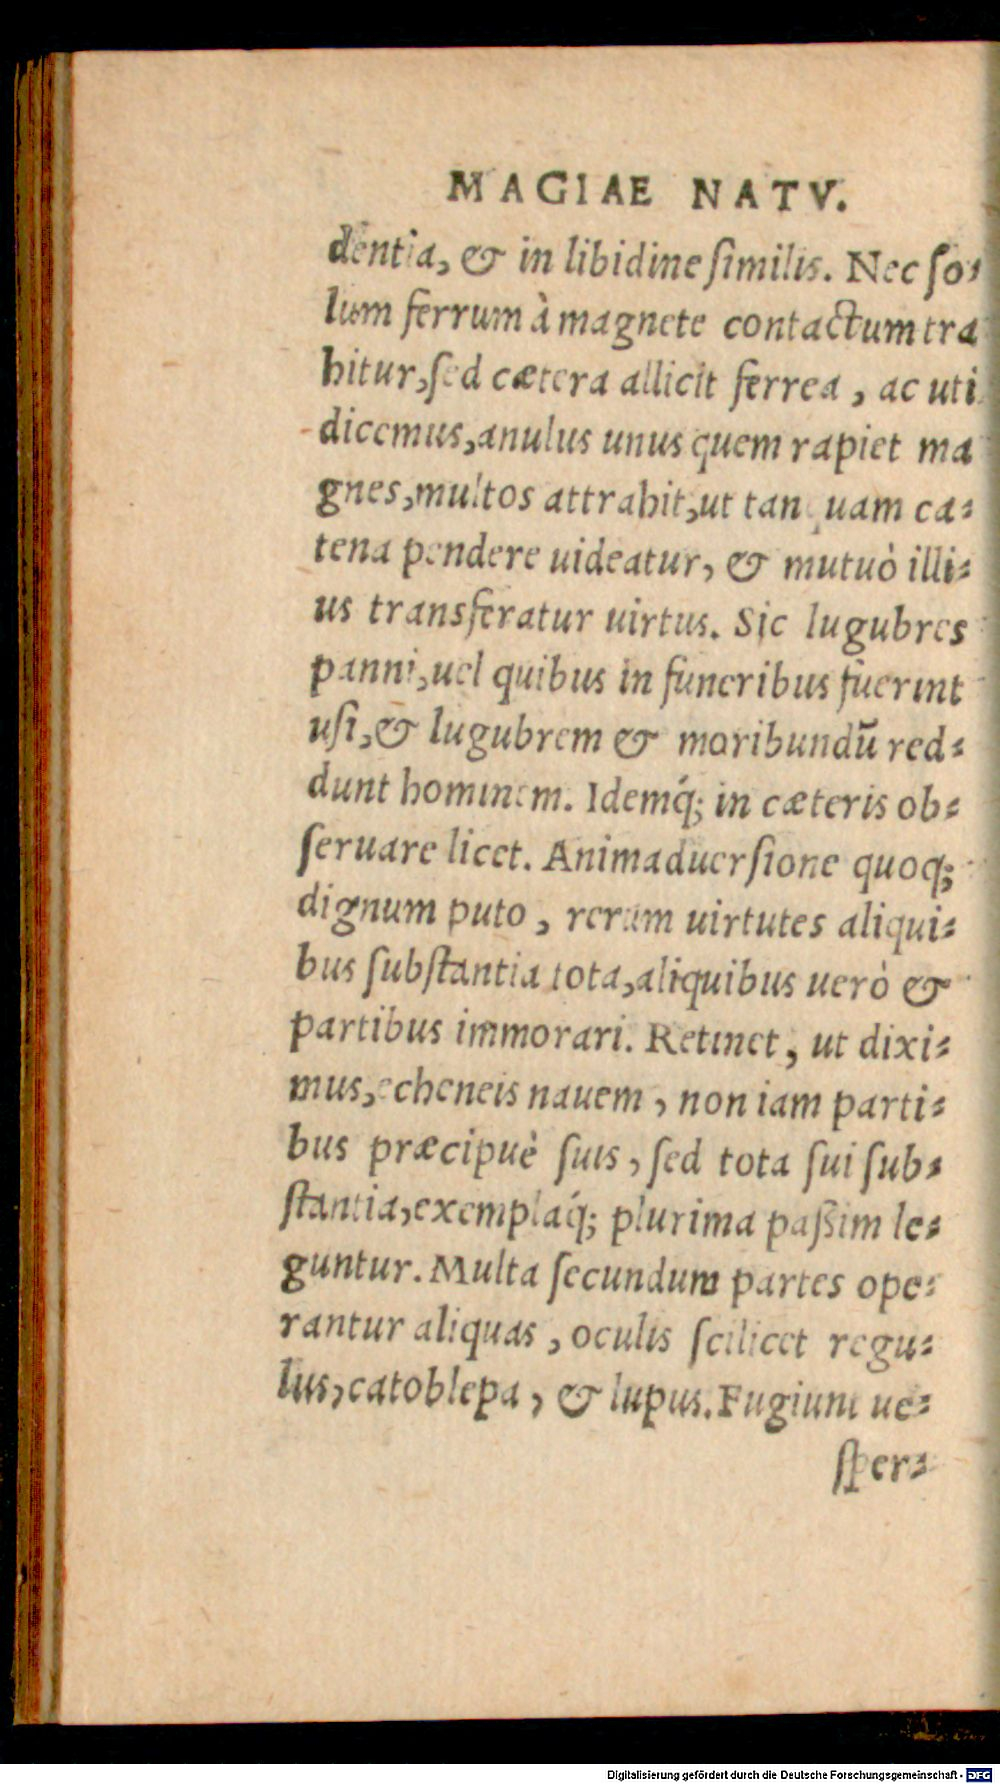 MAGIAE NATV.
dentia, & in libidine ſimilis. Nec ſo⸗
lum ferrum à magnete contactum tra
hitur, ſed cætera allicit ferrea, ac uti
dicemus, anulus unus quem rapiet ma
gnes, multos attrahit, ut tanquam ca⸗
tena pendere uideatur, & mutuò illi⸗
us transferatur uirtus. Sic lugubres
panni, uel quibus in funeribus fuerint
uſi, & lugubrem & moribundū red⸗
dunt hominem. Idemq́; in cæteris ob⸗
ſeruare licet. Animaduerſione quoq;
dignum puto, rerum uirtutes aliqui⸗
bus ſubſtantia tota, aliquibus uerò &
partibus immorari. Retinet, ut dixi⸗
mus, echeneis nauem, non iam parti⸗
bus præcipuè ſuis, ſed tota ſui ſub⸗
ſtantia, exemplaq́; plurima paßim le⸗
guntur. Multa ſecundum partes ope⸗
rantur aliquas, oculis ſcilicet regu⸗
lus, catoblepa, & lupus. Fugiunt ue⸗
ſper⸗
Digitalisierung gefördert durch die Deutsche Forschungsgemeinschaft - DFG